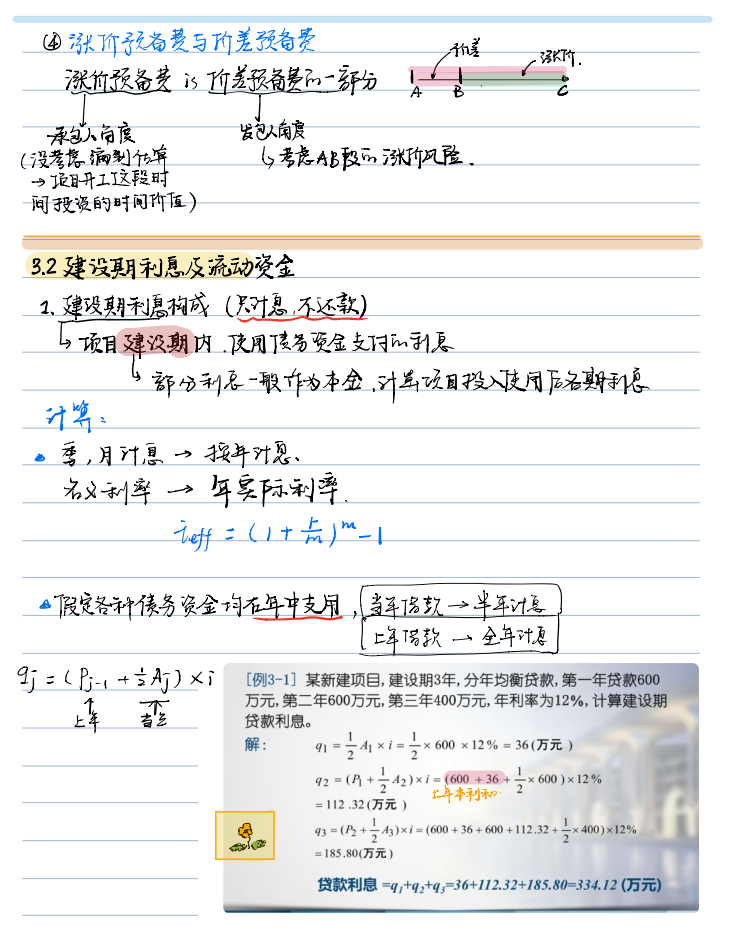 ④ 涨价预备费与价差预备费
涨价预备费 is 价差预备费的一部分
价差 涨价.
A B C
承包人角度 发包人角度
(没考虑编制估算 ↳ 考虑AB段的涨价风险.
→ 项目开工这段时
间投资的时间价值)
3.2 建设期利息及流动资金
1. 建设期利息构成 (只计息,不还款)
↳ 项目建设期内,使用债务资金支付的利息
↳ 部分利息一般作为本金,计算项目投入使用后各期利息
计算:
季,月计息 → 按年计息、
名义利率 → 年实际利率.
i_eff = (1 + r/m)^m - 1
假定各种债务资金均在年中支用, 当年借款 → 半年计息
上年借款 → 全年计息
qj = (Pj-1 + ½Aj) × i
↑上年 ↑当年
[例3-1] 某新建项目, 建设期3年, 分年均衡贷款, 第一年贷款600
万元, 第二年600万元, 第三年400万元, 年利率为12%, 计算建设期
贷款利息。
解: q₁ = 1/2 A₁ × i = 1/2 × 600 × 12% = 36(万元)
q₂ = (P₁ + 1/2 A₂) × i = (600 + 36 + 1/2 × 600) × 12%
上年本利和
= 112.32(万元)
q₃ = (P₂ + 1/2 A₃) × i = (600 + 36 + 600 + 112.32 + 1/2 × 400) × 12%
= 185.80(万元)
贷款利息 =q₁+q₂+q₃=36+112.32+185.80=334.12 (万元)